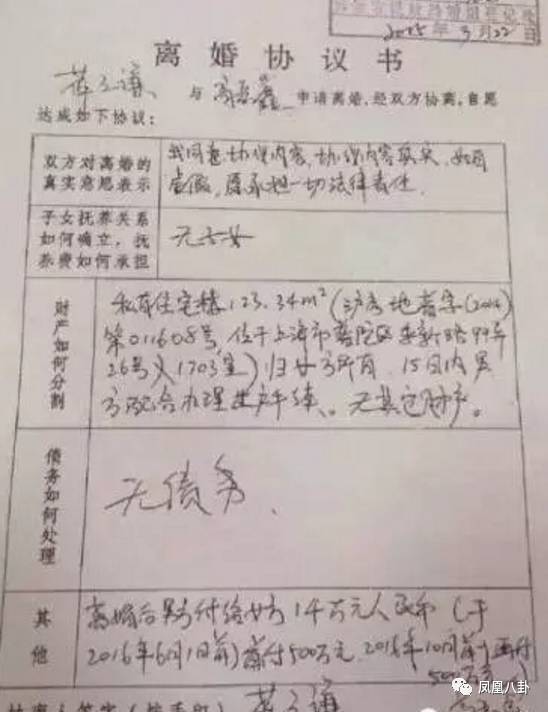 2015年3月22日
离婚协议书
与 申请离婚,经双方协商,自愿
达成如下协议:
双方对离婚的
真实意思表示
我同意协议内容,协议内容真实,如有
虚假,愿承担一切法律责任.
子女抚养关系
如何确立,抚
养费如何承担
无子女
财产如何分割
私有住宅楼123.34m²(沪房地普字(2014)
第011608号,位于上海市普陀区 新路99弄
26号 1703室)归女方所有,15日内男
方配合办理 手续、无其它财产。
债务如何处理
无债务、
其他
离婚后男方付给女方1千万元人民币(于
2016年6月1日前)首付500万元,2016年10月前 再付
500万
凤凰八卦